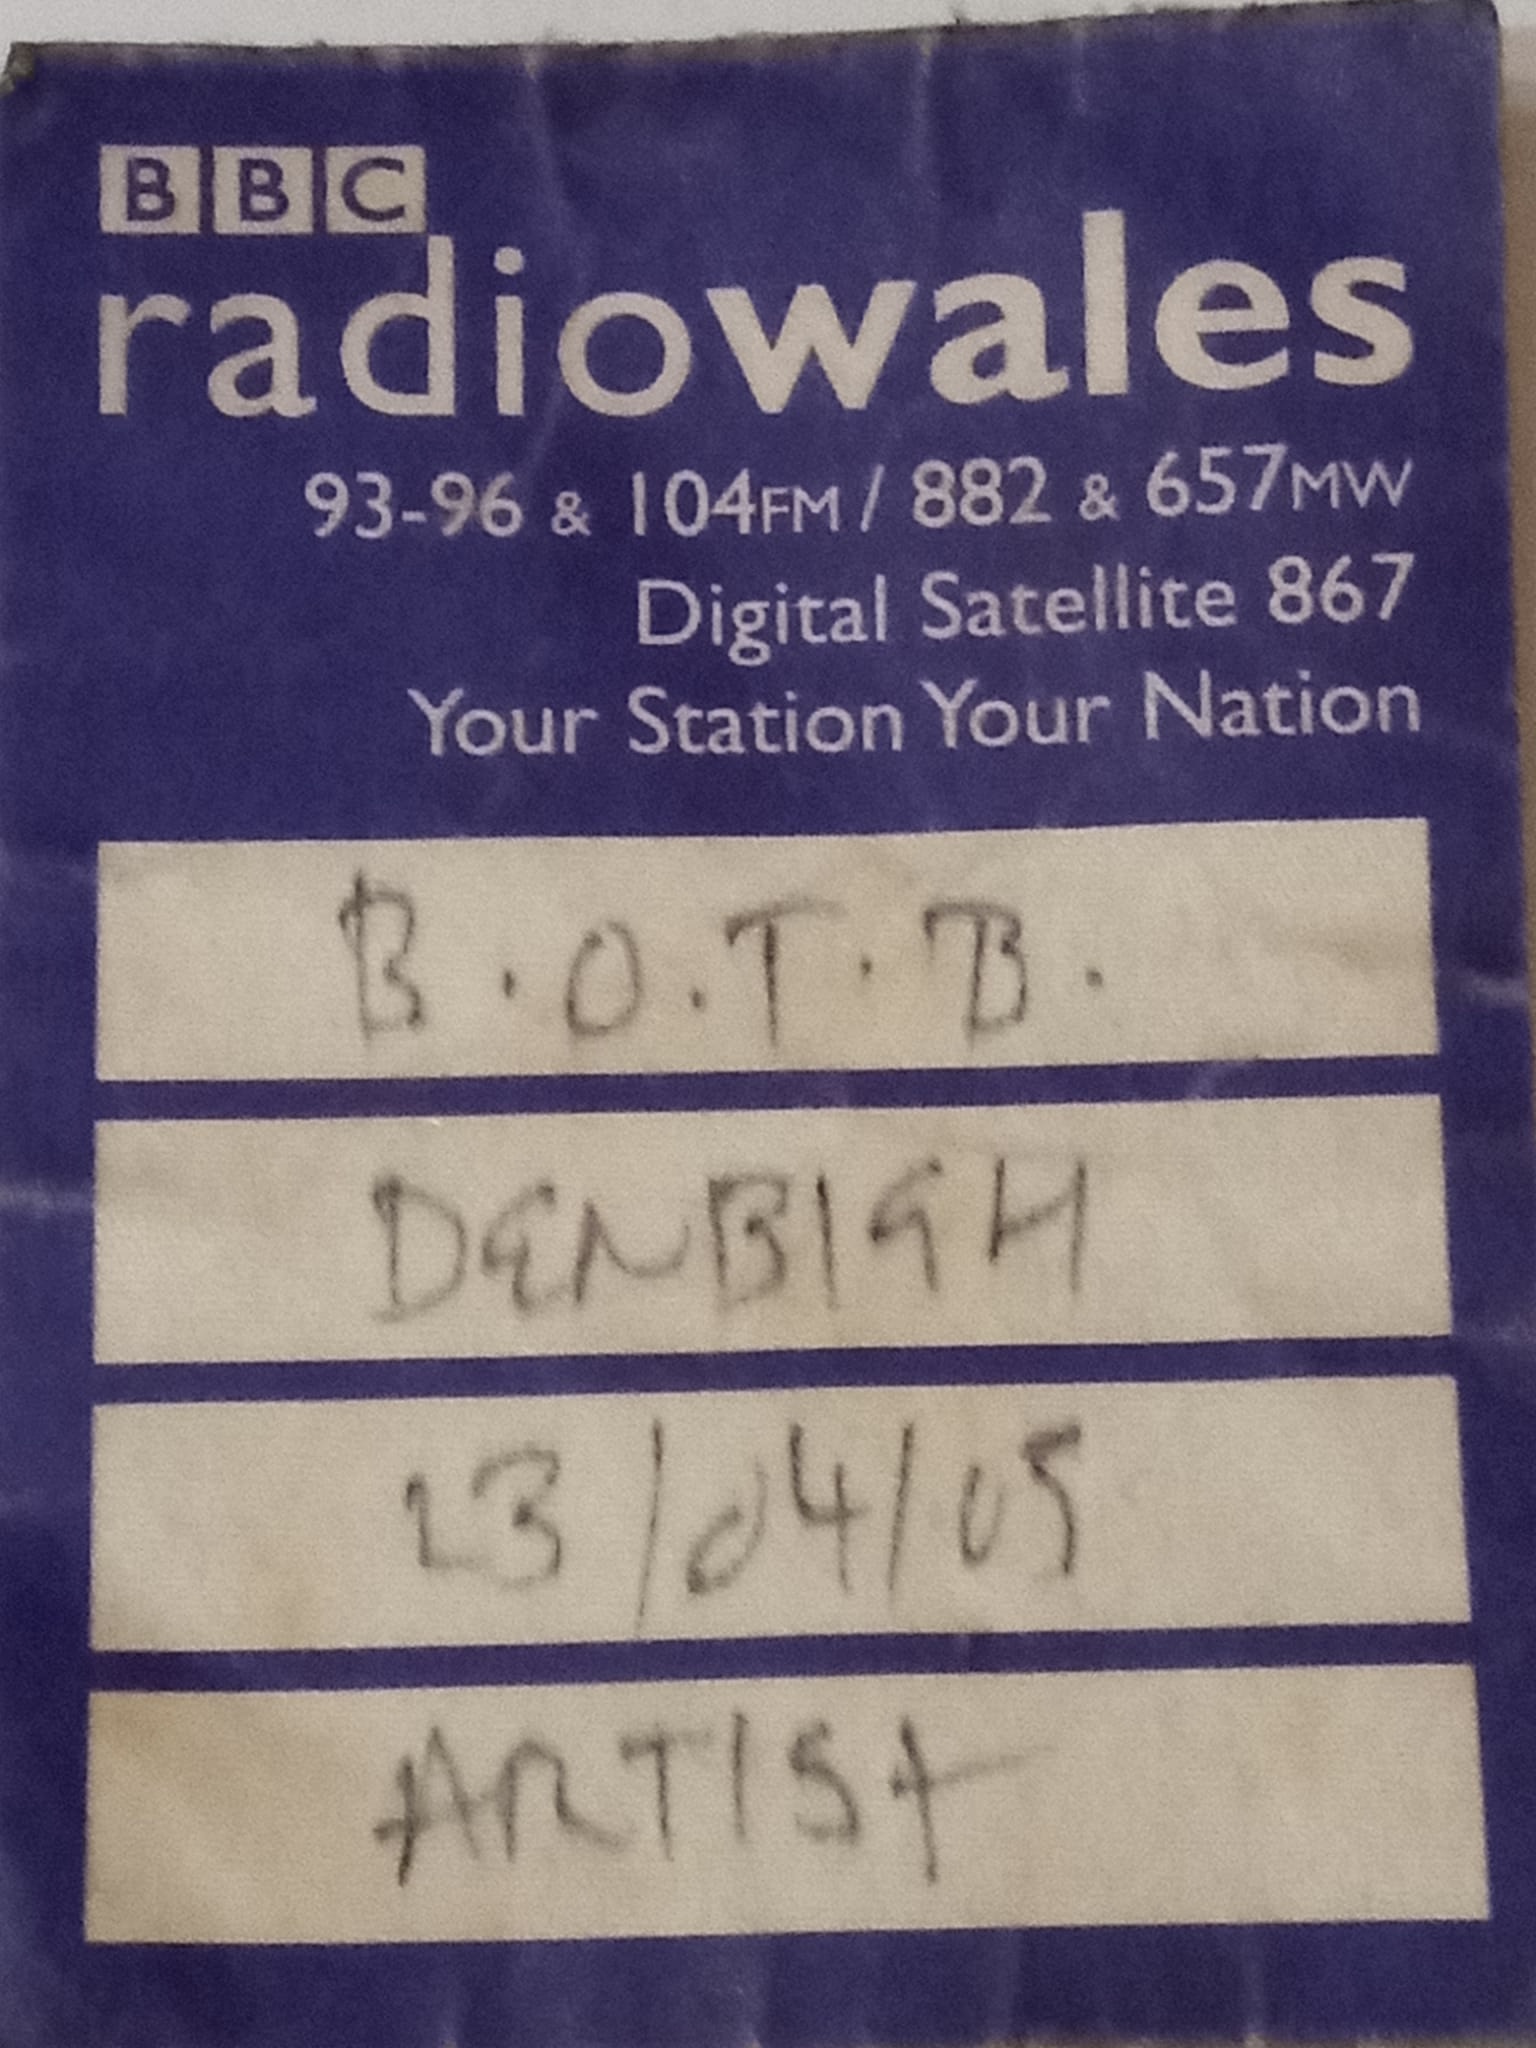 BBC
radiowales
93-96 & 104FM / 882 & 657MW
Digital Satellite 867
Your Station Your Nation
B.O.T.B.
DENBIGH
23/04/05
ARTIST